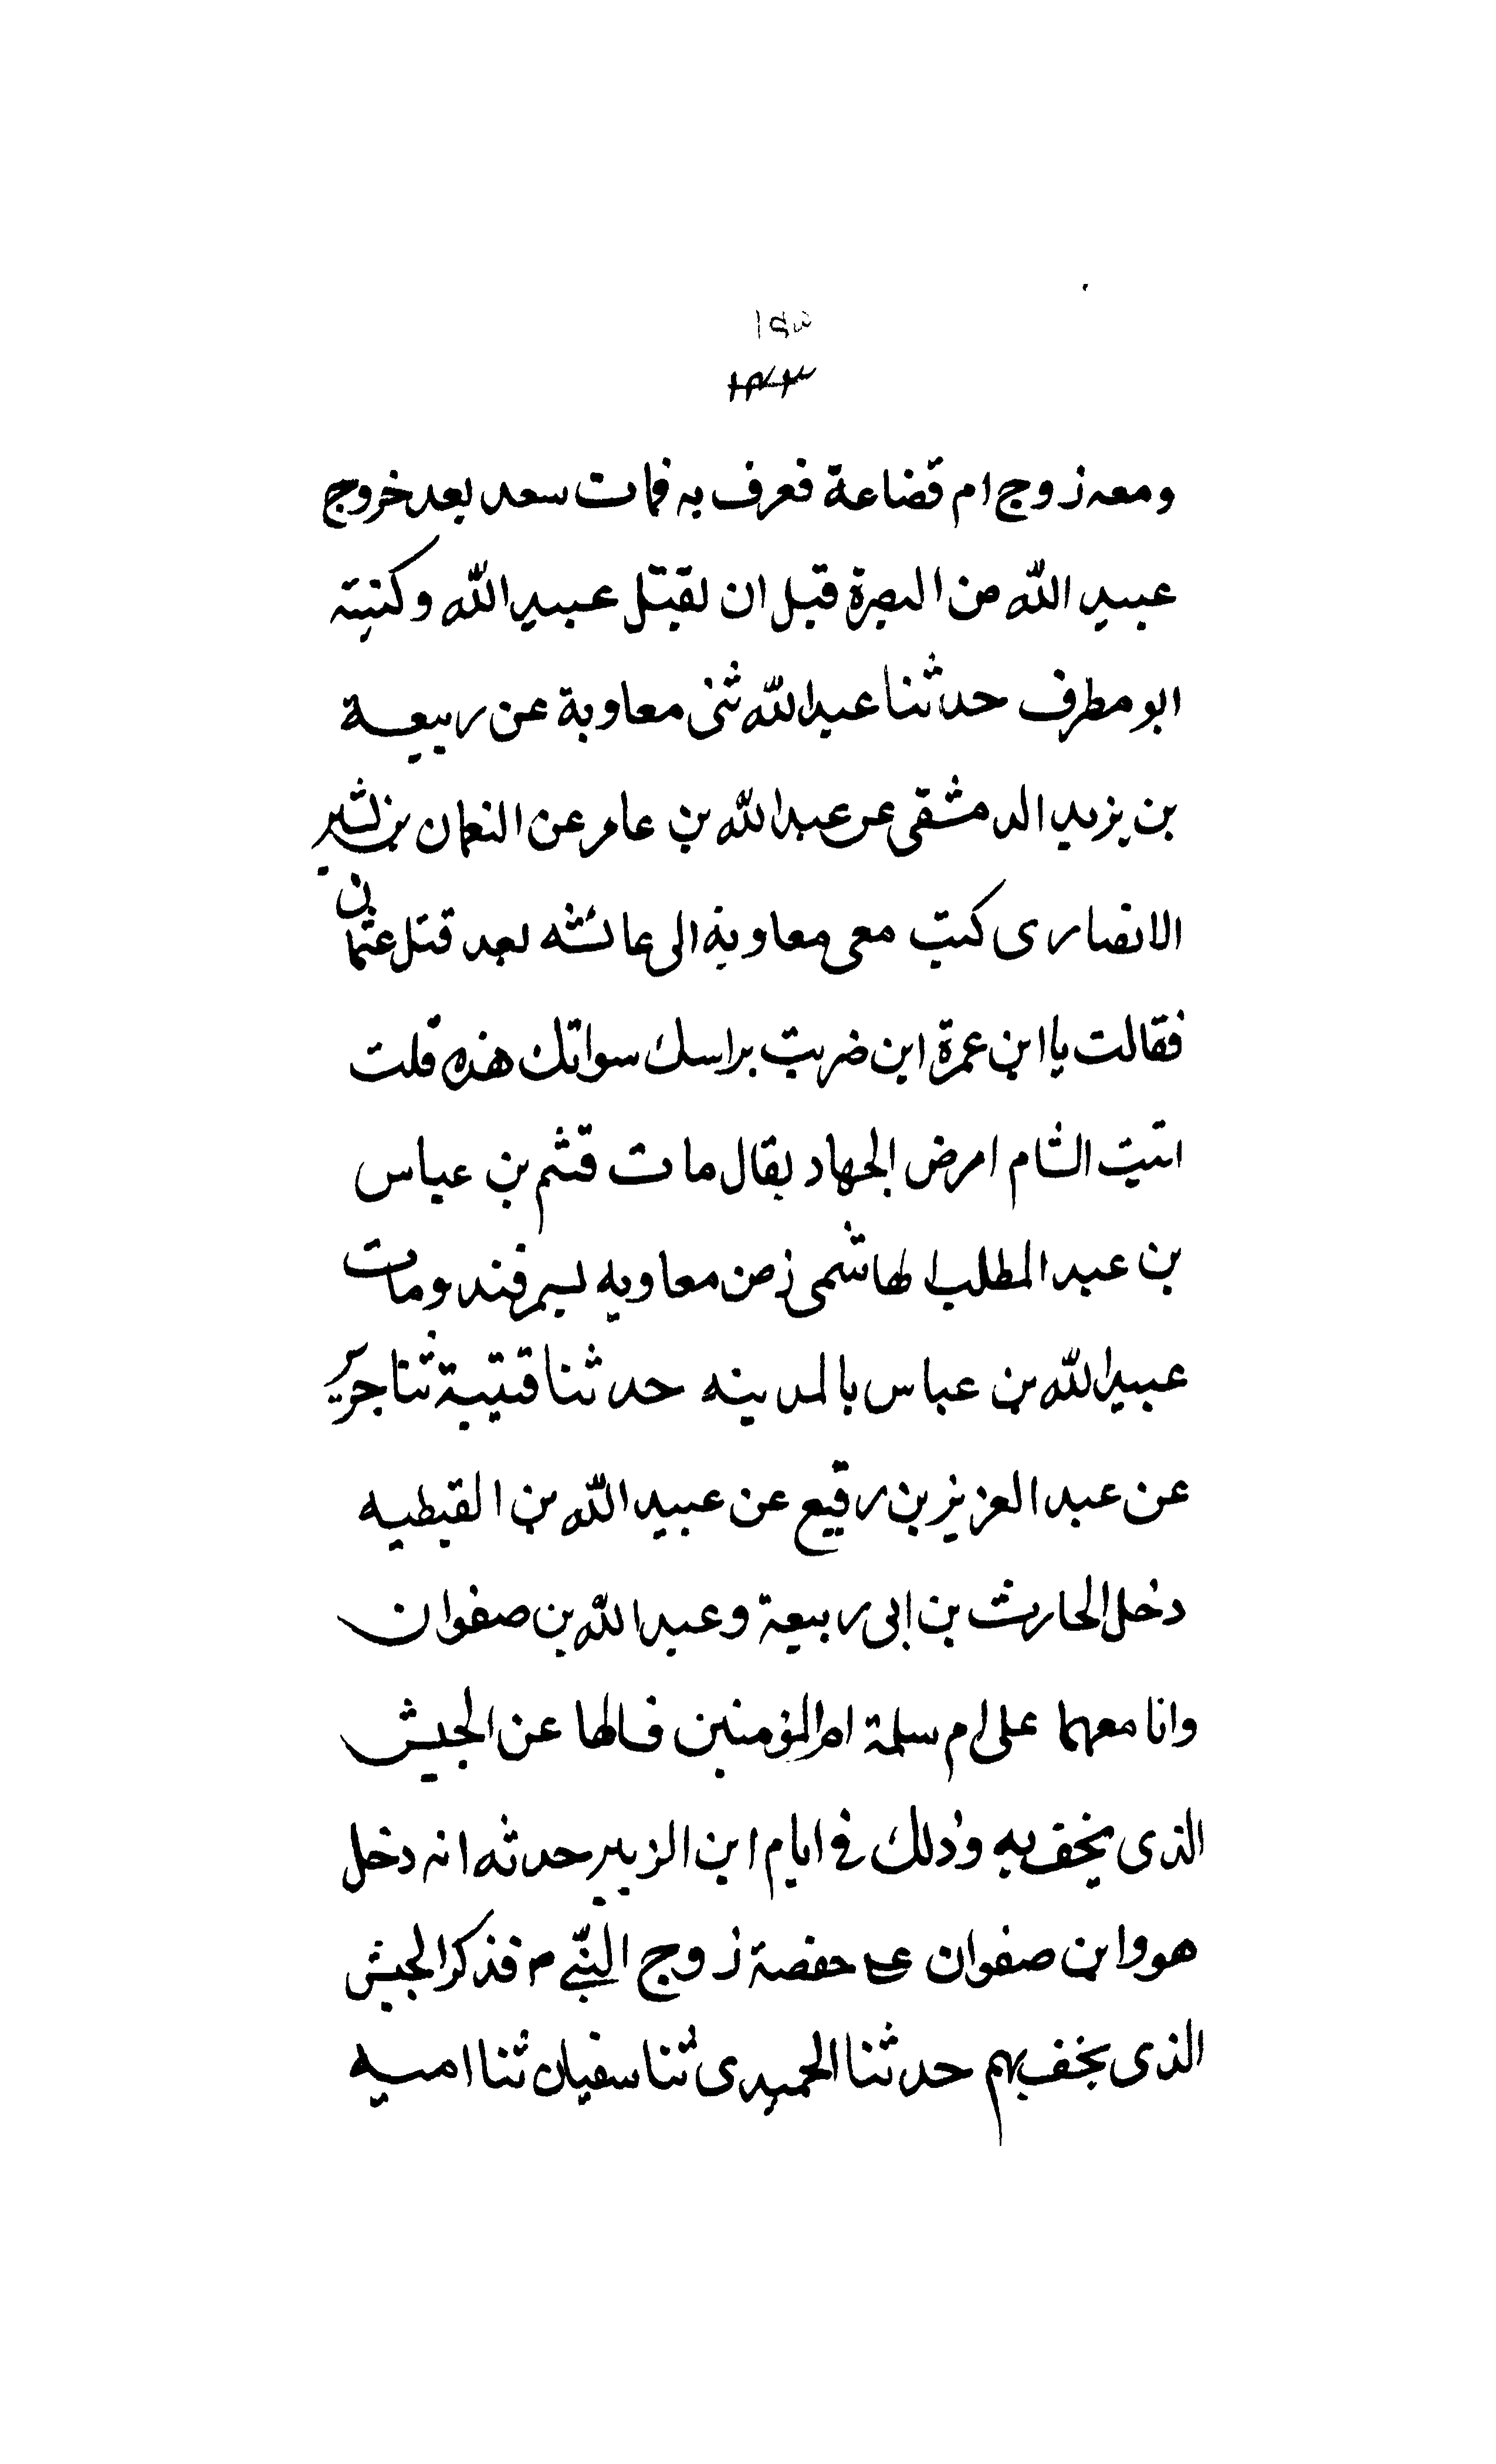 ١٤٣
ومعه زوج ام قضاعة فعرف به فمات سعد بعد خروج
عبيد الله من البصرة قبل ان يقتل عبيد الله وكنيته
ابو مطرف حدثنا عبد الله ثنى معاوية عن ربيعة
بن يزيد الدمشقى عن عبد الله بن عامر عن النعمان بن بشير
الانصارى كتب معى معاوية الى عائشه بعد قتل عثمان
فقالت يا ابن عمرة اين ضربت براسك سواتك هذه قلت
اتيت الشام ارض الجهاد يقال مات قثم بن عباس
بن عبد المطلب الهاشمى زمن معاويه بسمرقند ومات
عبيد الله بن عباس بالمدينه حدثنا قتيبة ثنا جرير
عن عبد العزيز بن رقيع عن عبيد الله بن القبطيه
دخل الحارث بن ابى ربيعة وعبد الله بن صفوان
وانا معهما على ام سلمة ام المؤمنين فسالها عن الجيش
الذى يخف به وذلك في ايام ابن الزبير حدثه انه دخل
هو وابن صفوان على حفصة زوج النبى م فذكر الجيش
الذى يخف بهم حدثنا الحميدى ثنا سفيان ثنا اميه